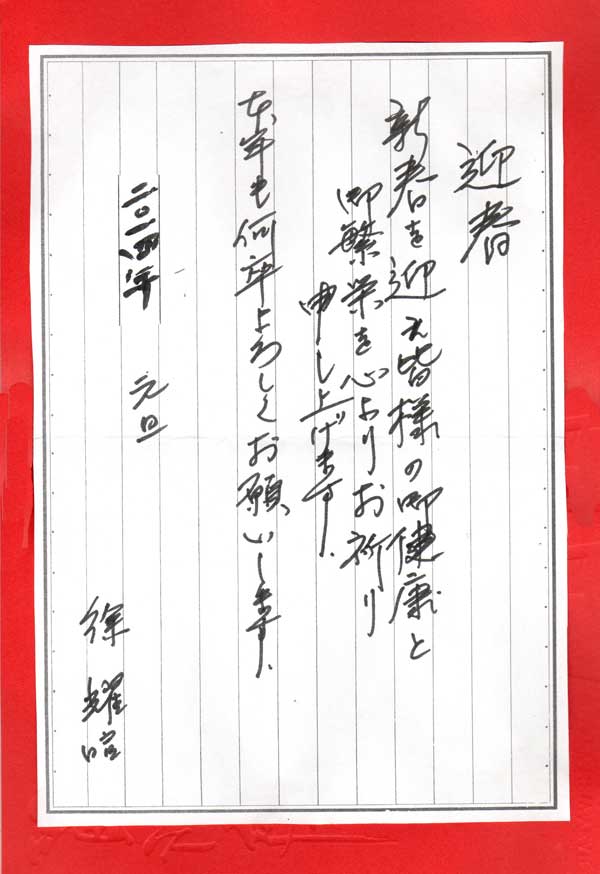 迎春
新春を迎え皆様の御健康と
御繁栄を心よりお祈り
申し上げます、
本年も何卒よろしくお願いします、
二〇一四年 元旦
徐 耀喧